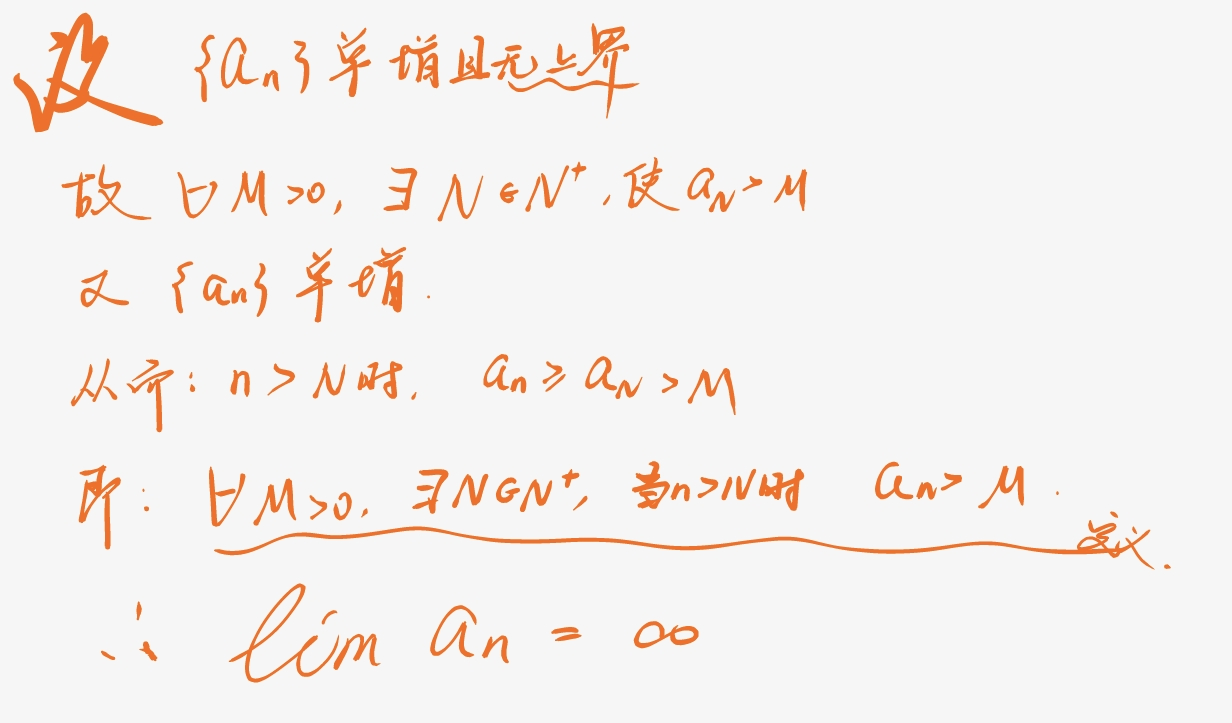 设 {aₙ}单增且无上界
故 ∀M>0, ∃N∈N⁺,使a_N>M
又 {aₙ}单增.
从而: n>N时, aₙ≥a_N>M
即: ∀M>0, ∃N∈N⁺, 当n>N时 aₙ>M.
定义.
∴ lim aₙ = ∞